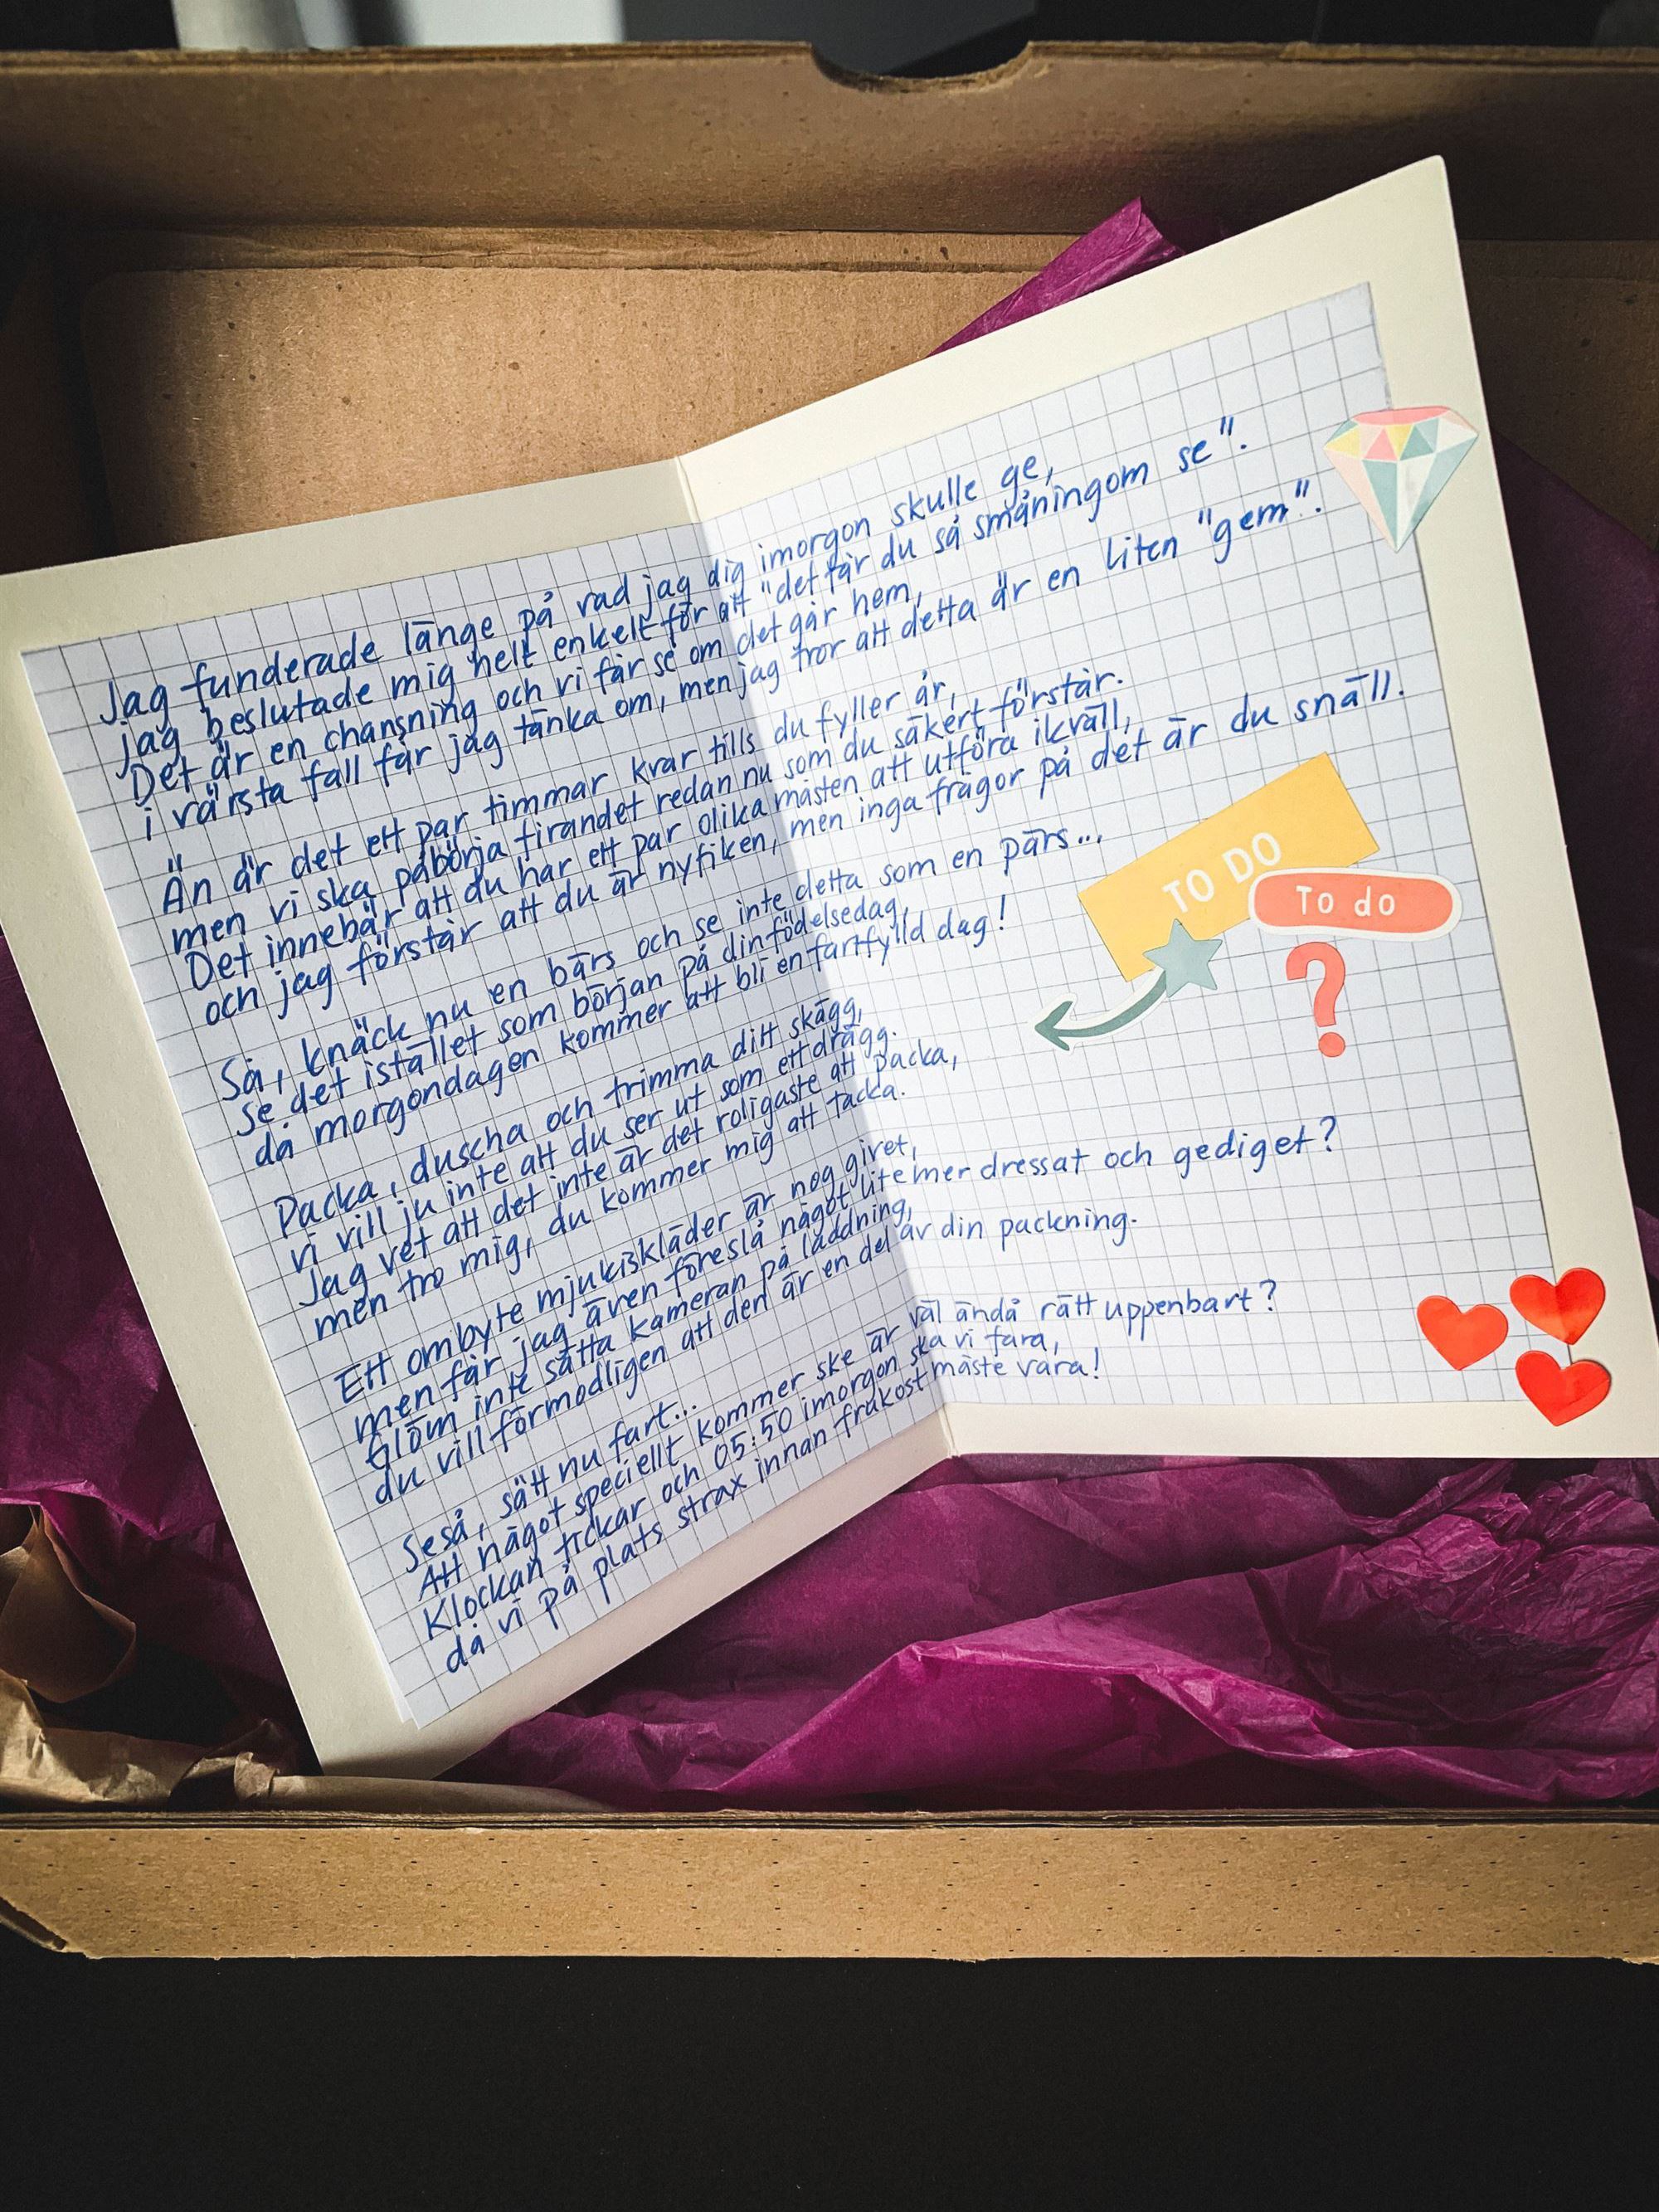 Jag funderade länge på vad jag dig imorgon skulle ge,
jag beslutade mig helt enkelt för att "det får du så småningom se".
Det är en chansning och vi får se om det går hem,
i värsta fall får jag tänka om, men jag tror att detta är en liten "gem".
Än är det ett par timmar kvar tills du fyller år,
men vi ska påbörja firandet redan nu som du säkert förstår.
Det innebär att du har ett par olika måsten att utföra ikväll,
och jag förstår att du är nyfiken, men inga frågor på det är du snäll.
Så, knäck nu en bärs och se inte detta som en pärs...
Se det istället som början på din födelsedag,
då morgondagen kommer att bli en fartfylld dag!
TO DO
To do
?
Packa, duscha och trimma ditt skägg,
vi vill ju inte att du ser ut som ett drägg.
Jag vet att det inte är det roligaste att packa,
men tro mig, du kommer mig att tacka.
Ett ombyte mjukiskläder är nog givet,
men får jag även föreslå något lite mer dressat och gediget?
Glöm inte sätta kameran på laddning,
du vill förmodligen att den är en del av din packning.
Seså, sätt nu fart...
Att något speciellt kommer ske är väl ändå rätt uppenbart?
Klockan tickar och 05:50 imorgon ska vi fara,
då vi på plats strax innan frukost måste vara!